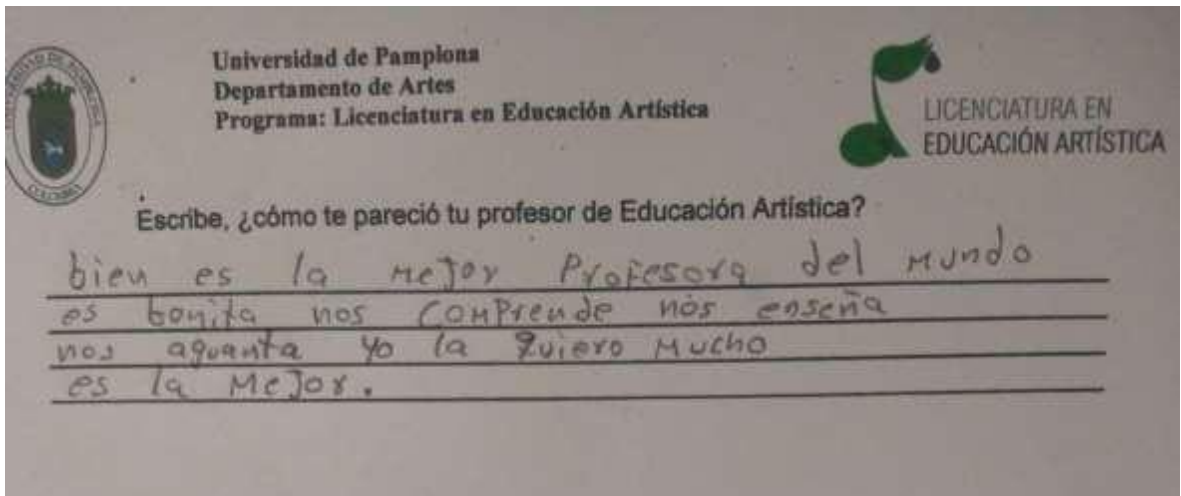 Universidad de Pamplona
Departamento de Artes
Programa: Licenciatura en Educación Artística
LICENCIATURA EN
EDUCACIÓN ARTÍSTICA
Escribe, ¿cómo te pareció tu profesor de Educación Artística?
bien es la mejor Profesora del mundo
es bonita nos comprende nos enseña
nos aguanta yo la quiero mucho
es la mejor.